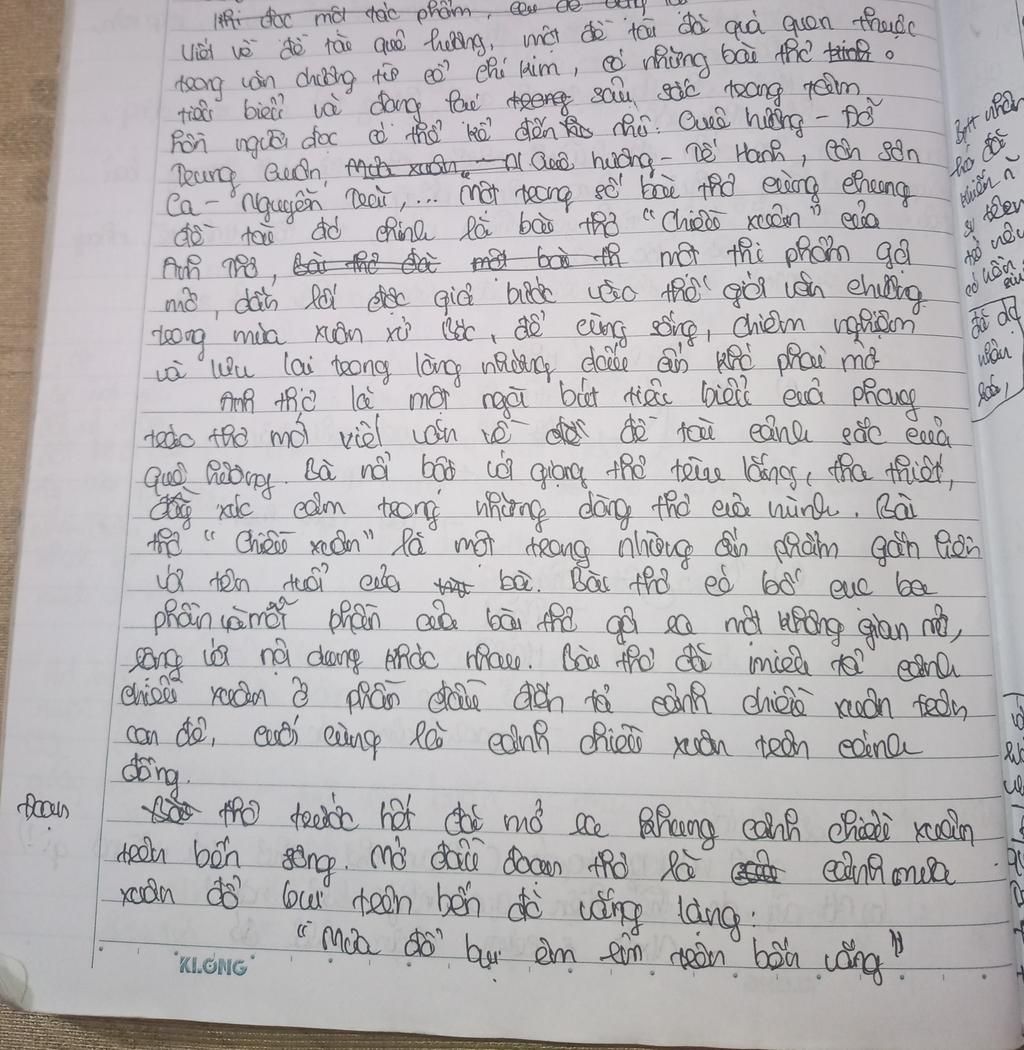 Khi đọc một tác phẩm,
Viết về đề tài quê hương, một đề tài đã quá quen thuộc
trong văn chương từ cổ chí kim, có những bài thơ
tiêu biểu và đọng lại trong sâu sắc trong tâm
hồn người đọc có thể kể đến như: Quê hương - Đỗ
Trung Quân, Mùa xuân Quê hương - Tế Hanh, Côn Sơn
Ca - Nguyễn Trãi,... Một trong số bài thơ cùng chung
đề tài đó chính là bài thơ "Chiều xuân" của
Anh Thơ, bài thơ đã một bài th một thi phẩm gợi
mở, dẫn lối độc giả bước vào thế giới văn chương
trong mùa xuân xứ Bắc, để cùng sống, chiêm nghiệm
và lưu lại trong lòng những dấu ấn khó phai mờ
Anh thơ là một ngòi bút tiêu biểu của phong
trào thơ mới viết văn về đề tài cảnh sắc của
quê hương. Bà nổi bật với giọng thơ trầm lắng, tha thiết,
đầy xúc cảm trong những dòng thơ của mình. Bài
thơ "Chiều xuân" là một trong những ấn phẩm gắn liền
với tên tuổi của bà. Bài thơ có bố cục ba
phần và mỗi phần của bài thơ gợi ra một không gian mở,
song với nội dung khác nhau. Bài thơ đã miêu tả cảnh
chiều xuân ở phần đầu đến tả cảnh chiều xuân trên
con đê, cuối cùng là cảnh chiều xuân trên cánh
đồng.
Đoạn
Bài thơ trước hết đã mở ra khung cảnh chiều xuân
trên bến sông. Mở đầu đoạn thơ là cảnh mưa
xuân đổ bụi trên bến đò vắng lặng:
"Mưa đổ bụi êm êm trên bến vắng"
KLONG